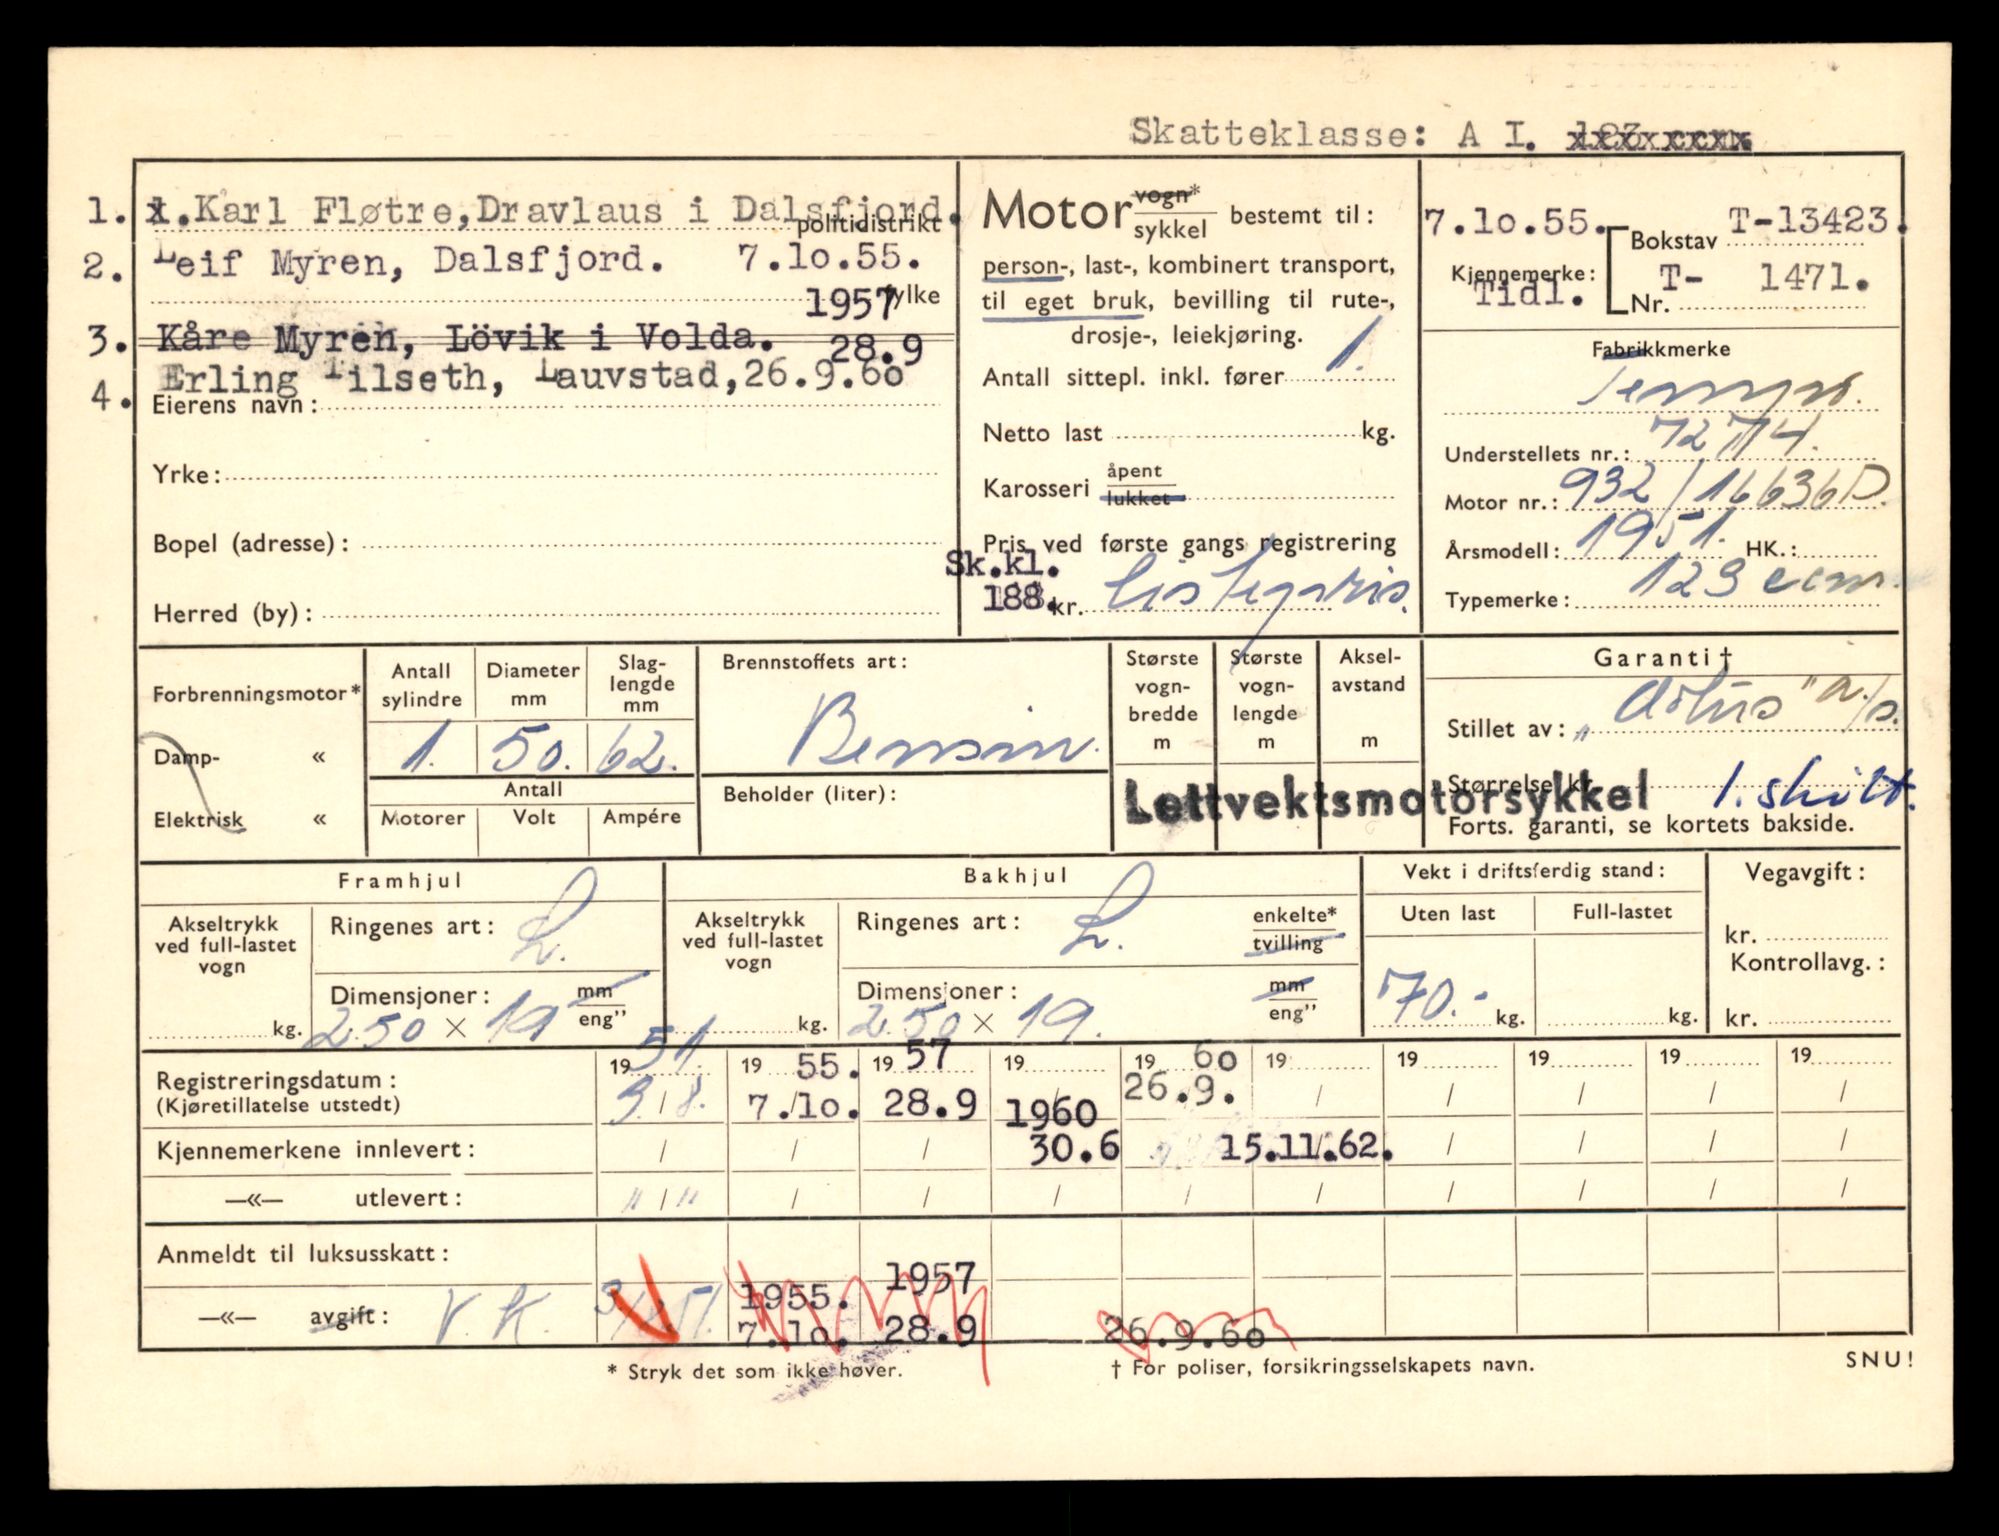 Skatteklasse: A I.
1. 1. Karl Fløtre, Dravlaus i Dalsfjord.
politidistrikt
2. Leif Myren, Dalsfjord. 7.10.55.
1957 fylke
3. Kåre Myren, Lövik i Volda. 28.9
4. Erling Tilseth, Lauvstad, 26.9.60
Eierens navn:
Yrke:
Bopel (adresse):
Herred (by):
Motor vogn* / sykkel bestemt til:
person-, last-, kombinert transport,
til eget bruk, bevilling til rute-,
drosje-, leiekjøring.
Antall sittepl. inkl. fører 1.
Netto last kg.
Karosseri åpent / lukket
Pris ved første gangs registrering
Sk.kl.
188. kr. Listepris.
7.10.55. Bokstav T-13423.
Kjennemerke: Tidl. Nr. T- 1471.
Fabrikkmerke
Tempo.
Understellets nr.: 72714.
Motor nr.: 932/16636D.
Årsmodell: 1951. HK.:
Typemerke: 123 ccm.
Forbrenningsmotor*
Damp- «
Elektrisk «
Antall sylindre 1.
Diameter mm 50.
Slaglengde mm 62.
Antall
Motorer Volt Ampére
Brennstoffets art:
Bensin.
Beholder (liter):
Største vognbredde m
Største vognlengde m
Akselavstand m
Lettvektsmotorsykkel
Garanti †
Stillet av: „Æolus" a/s.
Størrelse kr. 1. skilt.
Forts. garanti, se kortets bakside.
Framhjul
Akseltrykk ved full-lastet vogn
kg.
Ringenes art: L.
Dimensjoner: mm / eng"
2.50 × 19
Bakhjul
Akseltrykk ved full-lastet vogn
kg.
Ringenes art: L. enkelte* / tvilling
Dimensjoner: mm / eng"
2.50 × 19.
Vekt i driftsferdig stand:
Uten last Full-lastet
70.- kg. kg.
Vegavgift:
kr.
Kontrollavg.:
kr.
19 51. 19 55. 19 57 19 19 60 19 19 19 19 19
Registreringsdatum:
(Kjøretillatelse utstedt)
3/8. 7./10. 28.9 1960 26.9. / / / / /
Kjennemerkene innlevert: / / / 30.6 15.11.62. / / / /
—«— utlevert: " / " / / / / / / / / /
Anmeldt til luksusskatt:
—«— avgift: V.K. 1955. 7.10. 1957 28.9 26.9.60
* Stryk det som ikke høver.
† For poliser, forsikringsselskapets navn.
SNU!